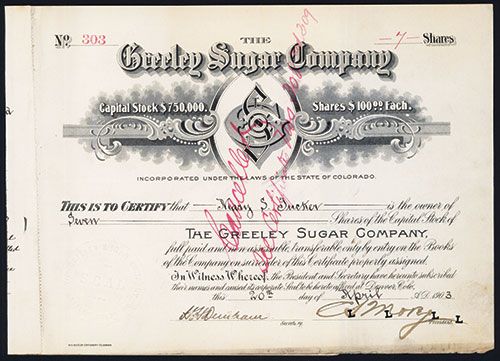 No 303 THE -7- Shares
Greeley Sugar Company
Capital Stock $750,000. Shares $100.00 Each.
INCORPORATED UNDER THE LAWS OF THE STATE OF COLORADO.
THIS IS TO CERTIFY that Mary E. Tucker is the owner of
Seven Shares of the Capital Stock of
THE GREELEY SUGAR COMPANY,
full paid and non assessable, transferable only by entry on the Books
of the Company on surrender of this Certificate properly assigned.
In Witness Whereof, the President and Secretary have hereunto subscribed
their names and caused its corporate Seal to be hereto affixed at Denver, Colo.,
this 20th day of April A.D. 1903
Secretary. President.
Cancelled